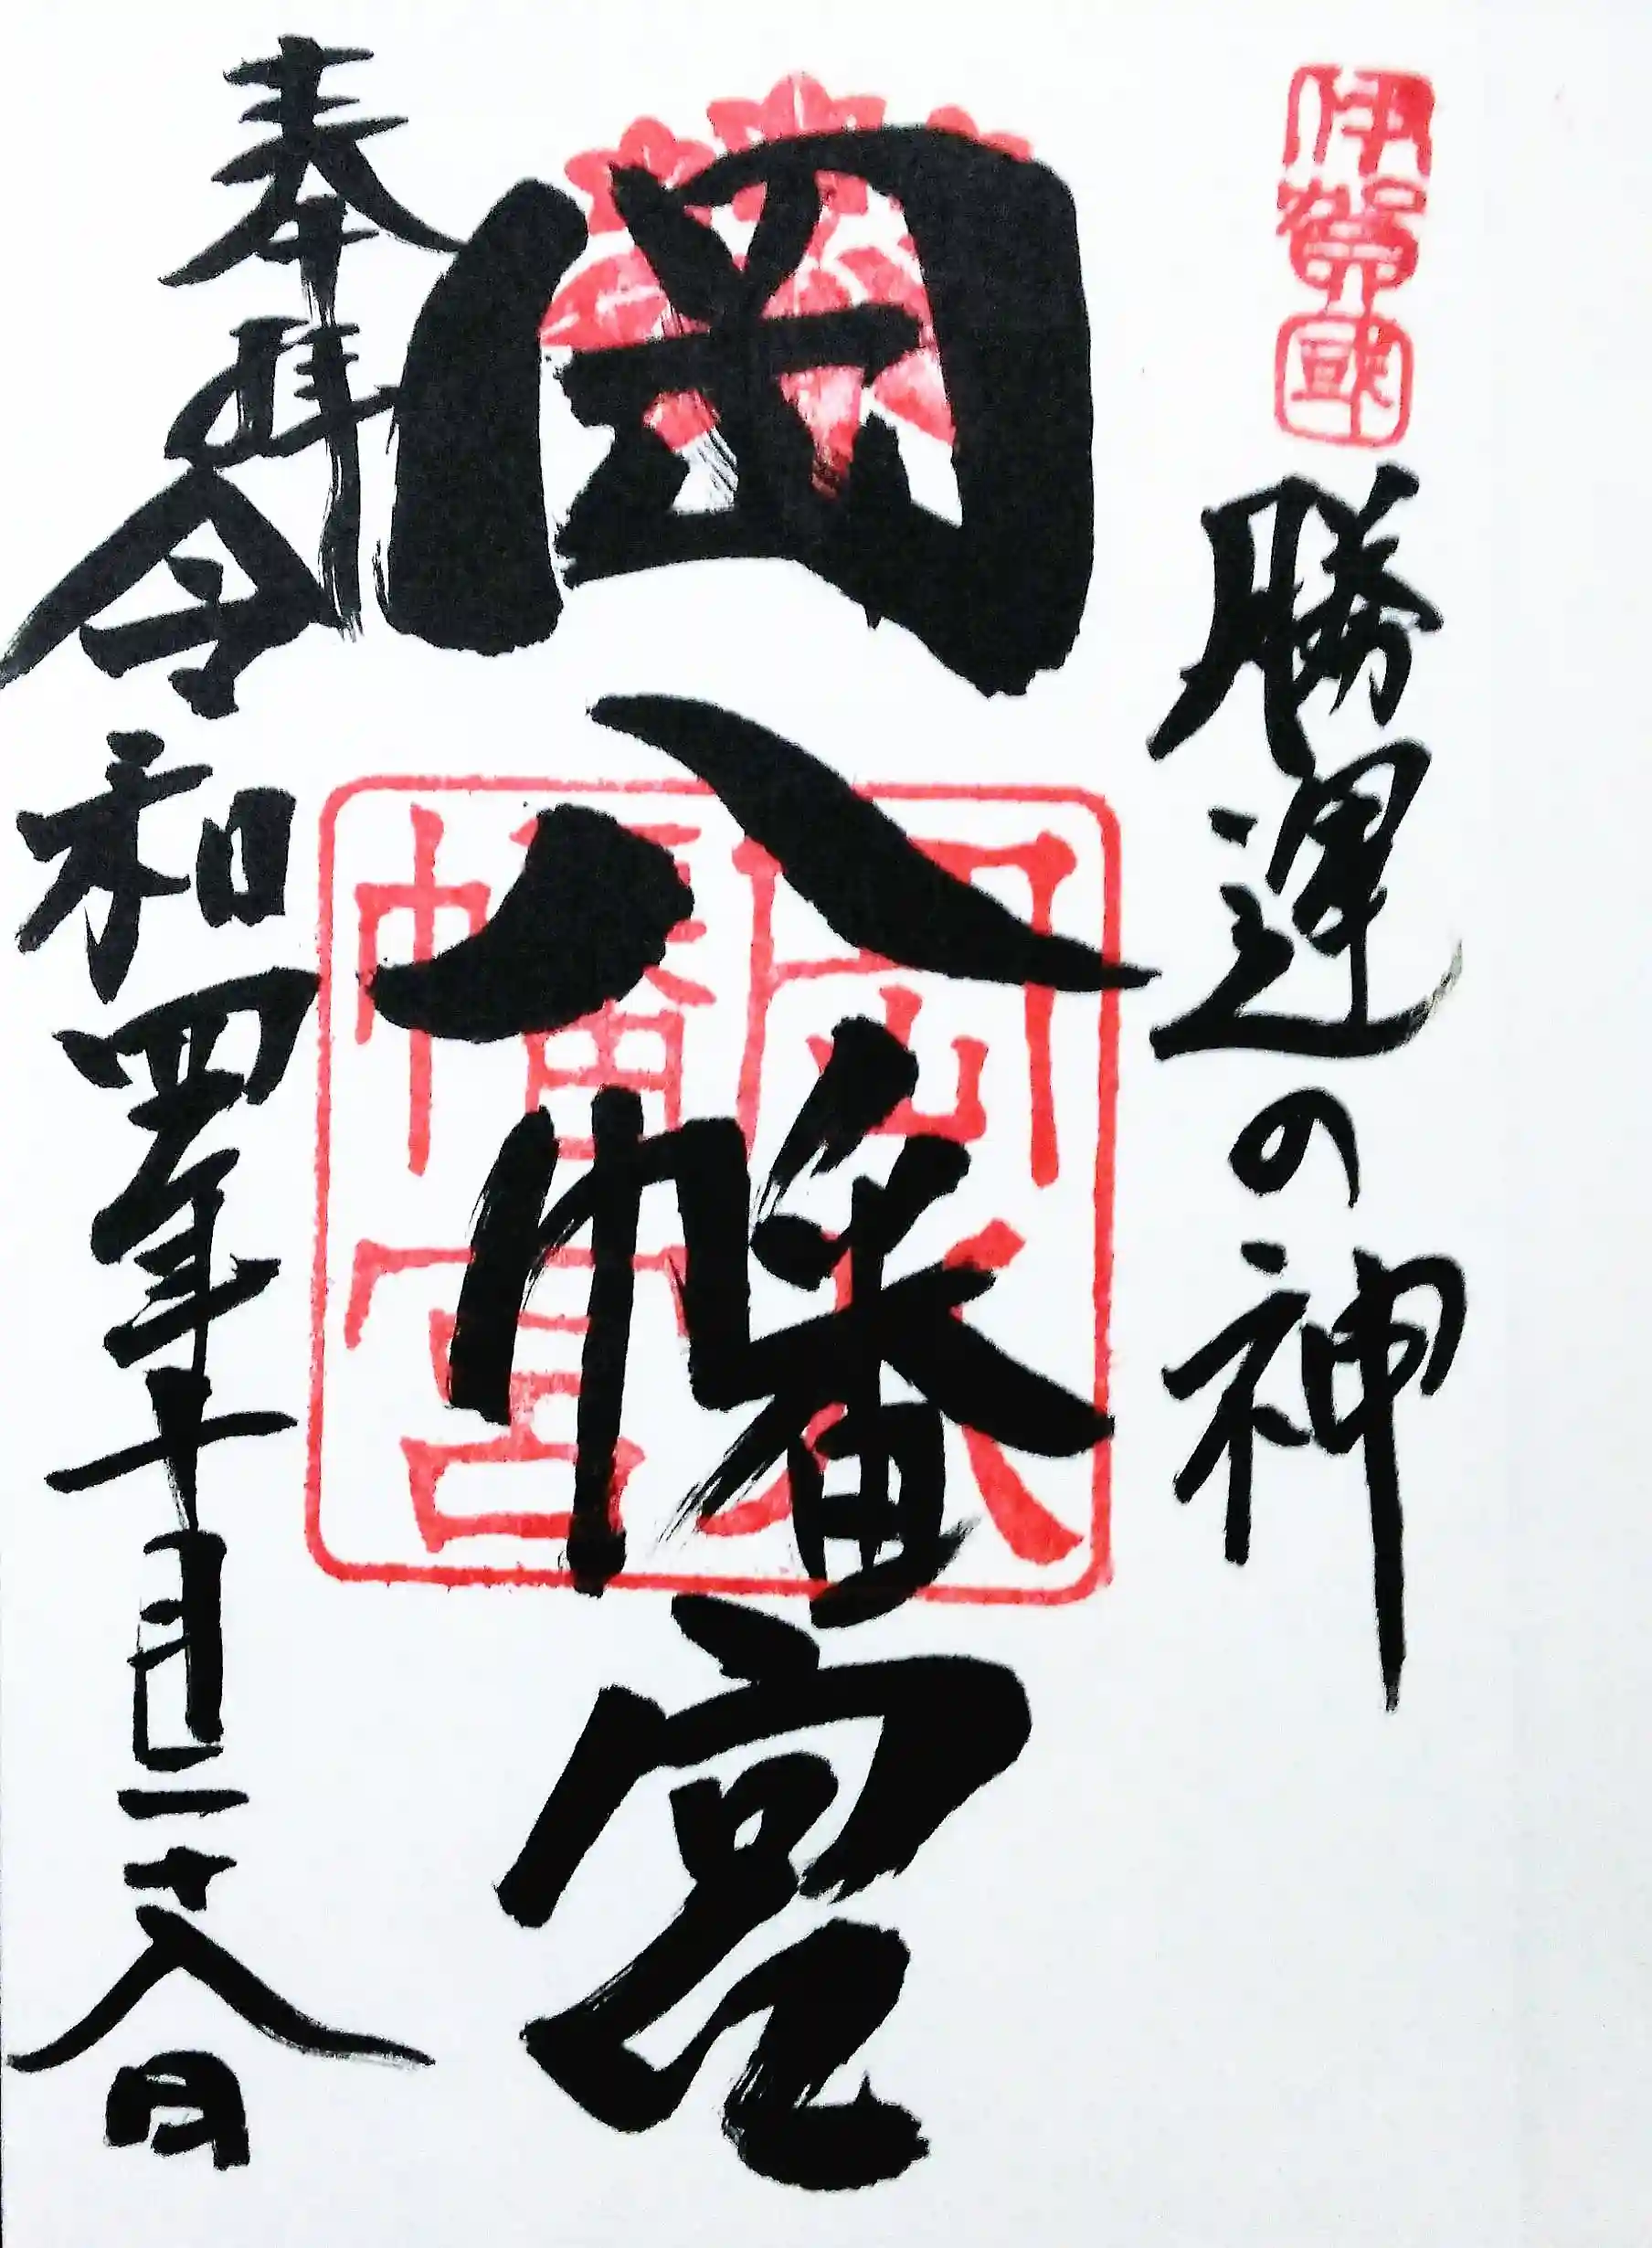 伊賀國
勝運の神
岡八幡宮
岡八
幡宮
奉拝 令和四年十月二十八日